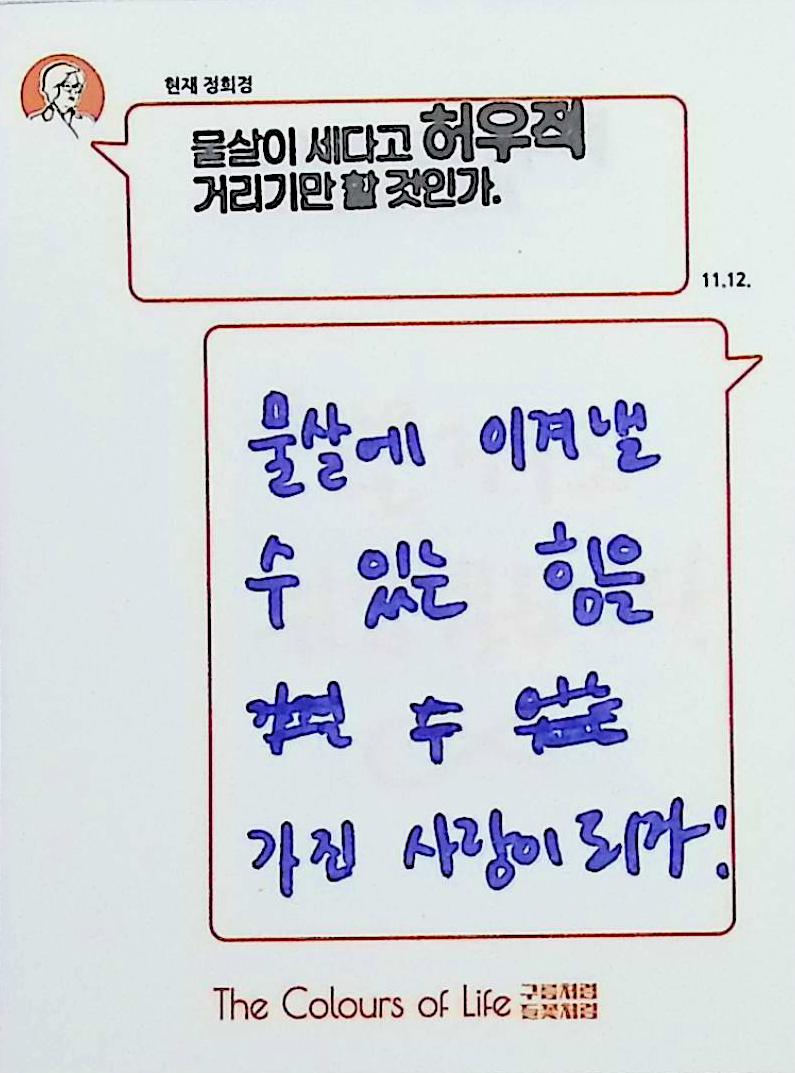 현재 정희경
물살이 세다고 허우적
거리기만 할 것인가.
11.12.
물살에 이겨낼
수 있는 힘을
가질 수 있는
가진 사람이 되자!
The Colours of Life 구름처럼
들꽃처럼